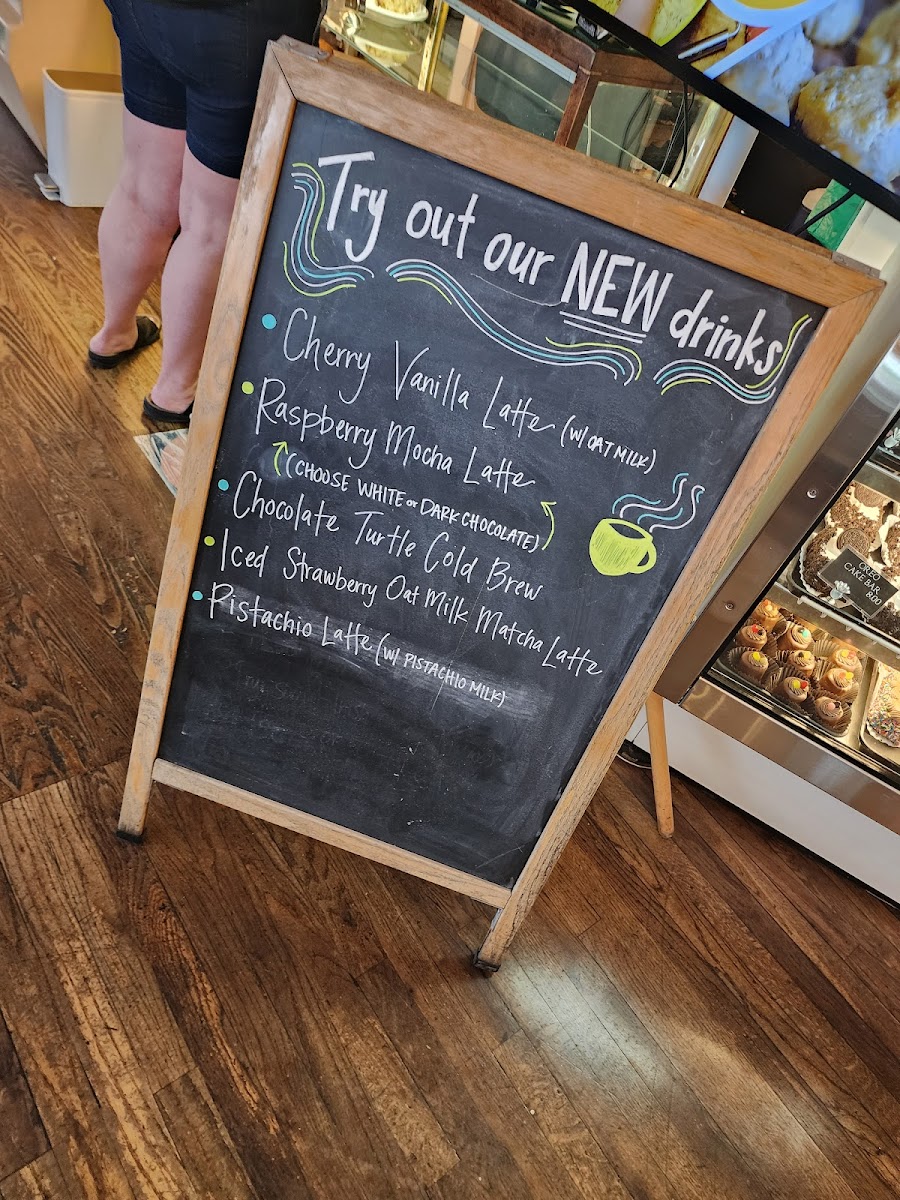 Try out our NEW drinks
Cherry Vanilla Latte (W/ OAT MILK)
Raspberry Mocha Latte
(CHOOSE WHITE or DARK CHOCOLATE)
Chocolate Turtle Cold Brew
Iced Strawberry Oat Milk Matcha Latte
Pistachio Latte (W/ PISTACHIO MILK)
OREO
CAKE BAR
8.00